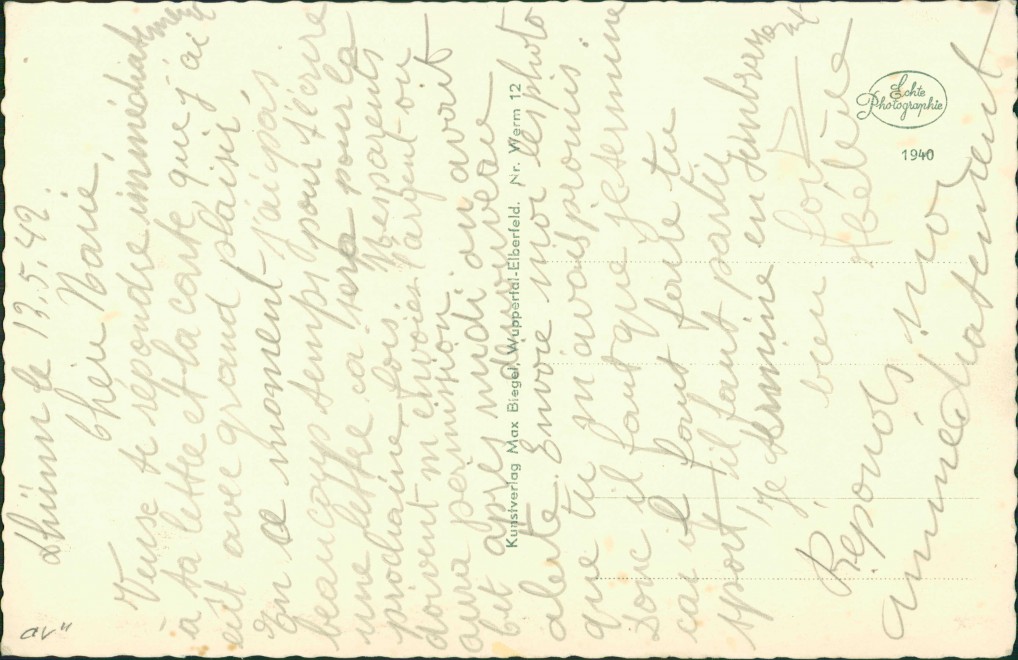 Lhünn le 13.5.42
Chère Marie,
Viense te répondre immédiatement
à ta lettre et la carte que j'ai
eut avec grand plaisir
En ce moment j'ai pas
beaucoup temps pour t'écrire
une lettre ca sera pour la
prochaine fois. Mes parents
doivent m'envoiés l'argent ou
aura permission
but après midi on avait
alerte. Envoie moi les photo
que tu m'avais promis
Donc il faut que je termine
car il faut faire tu
sport il faut partir
je termine en t'embrassant
bien fort
Réponds moi
immédiatement
Echte
Photographie
1940
Kunstverlag Max Biegel, Wuppertal-Elberfeld. Nr. Werm 12